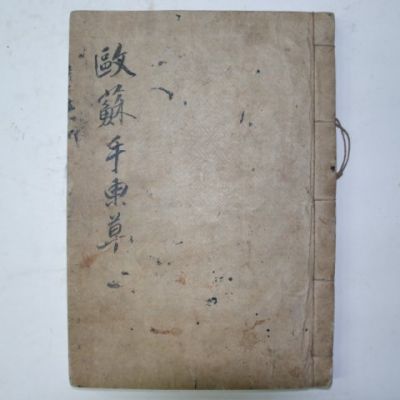 歐蘇手東草